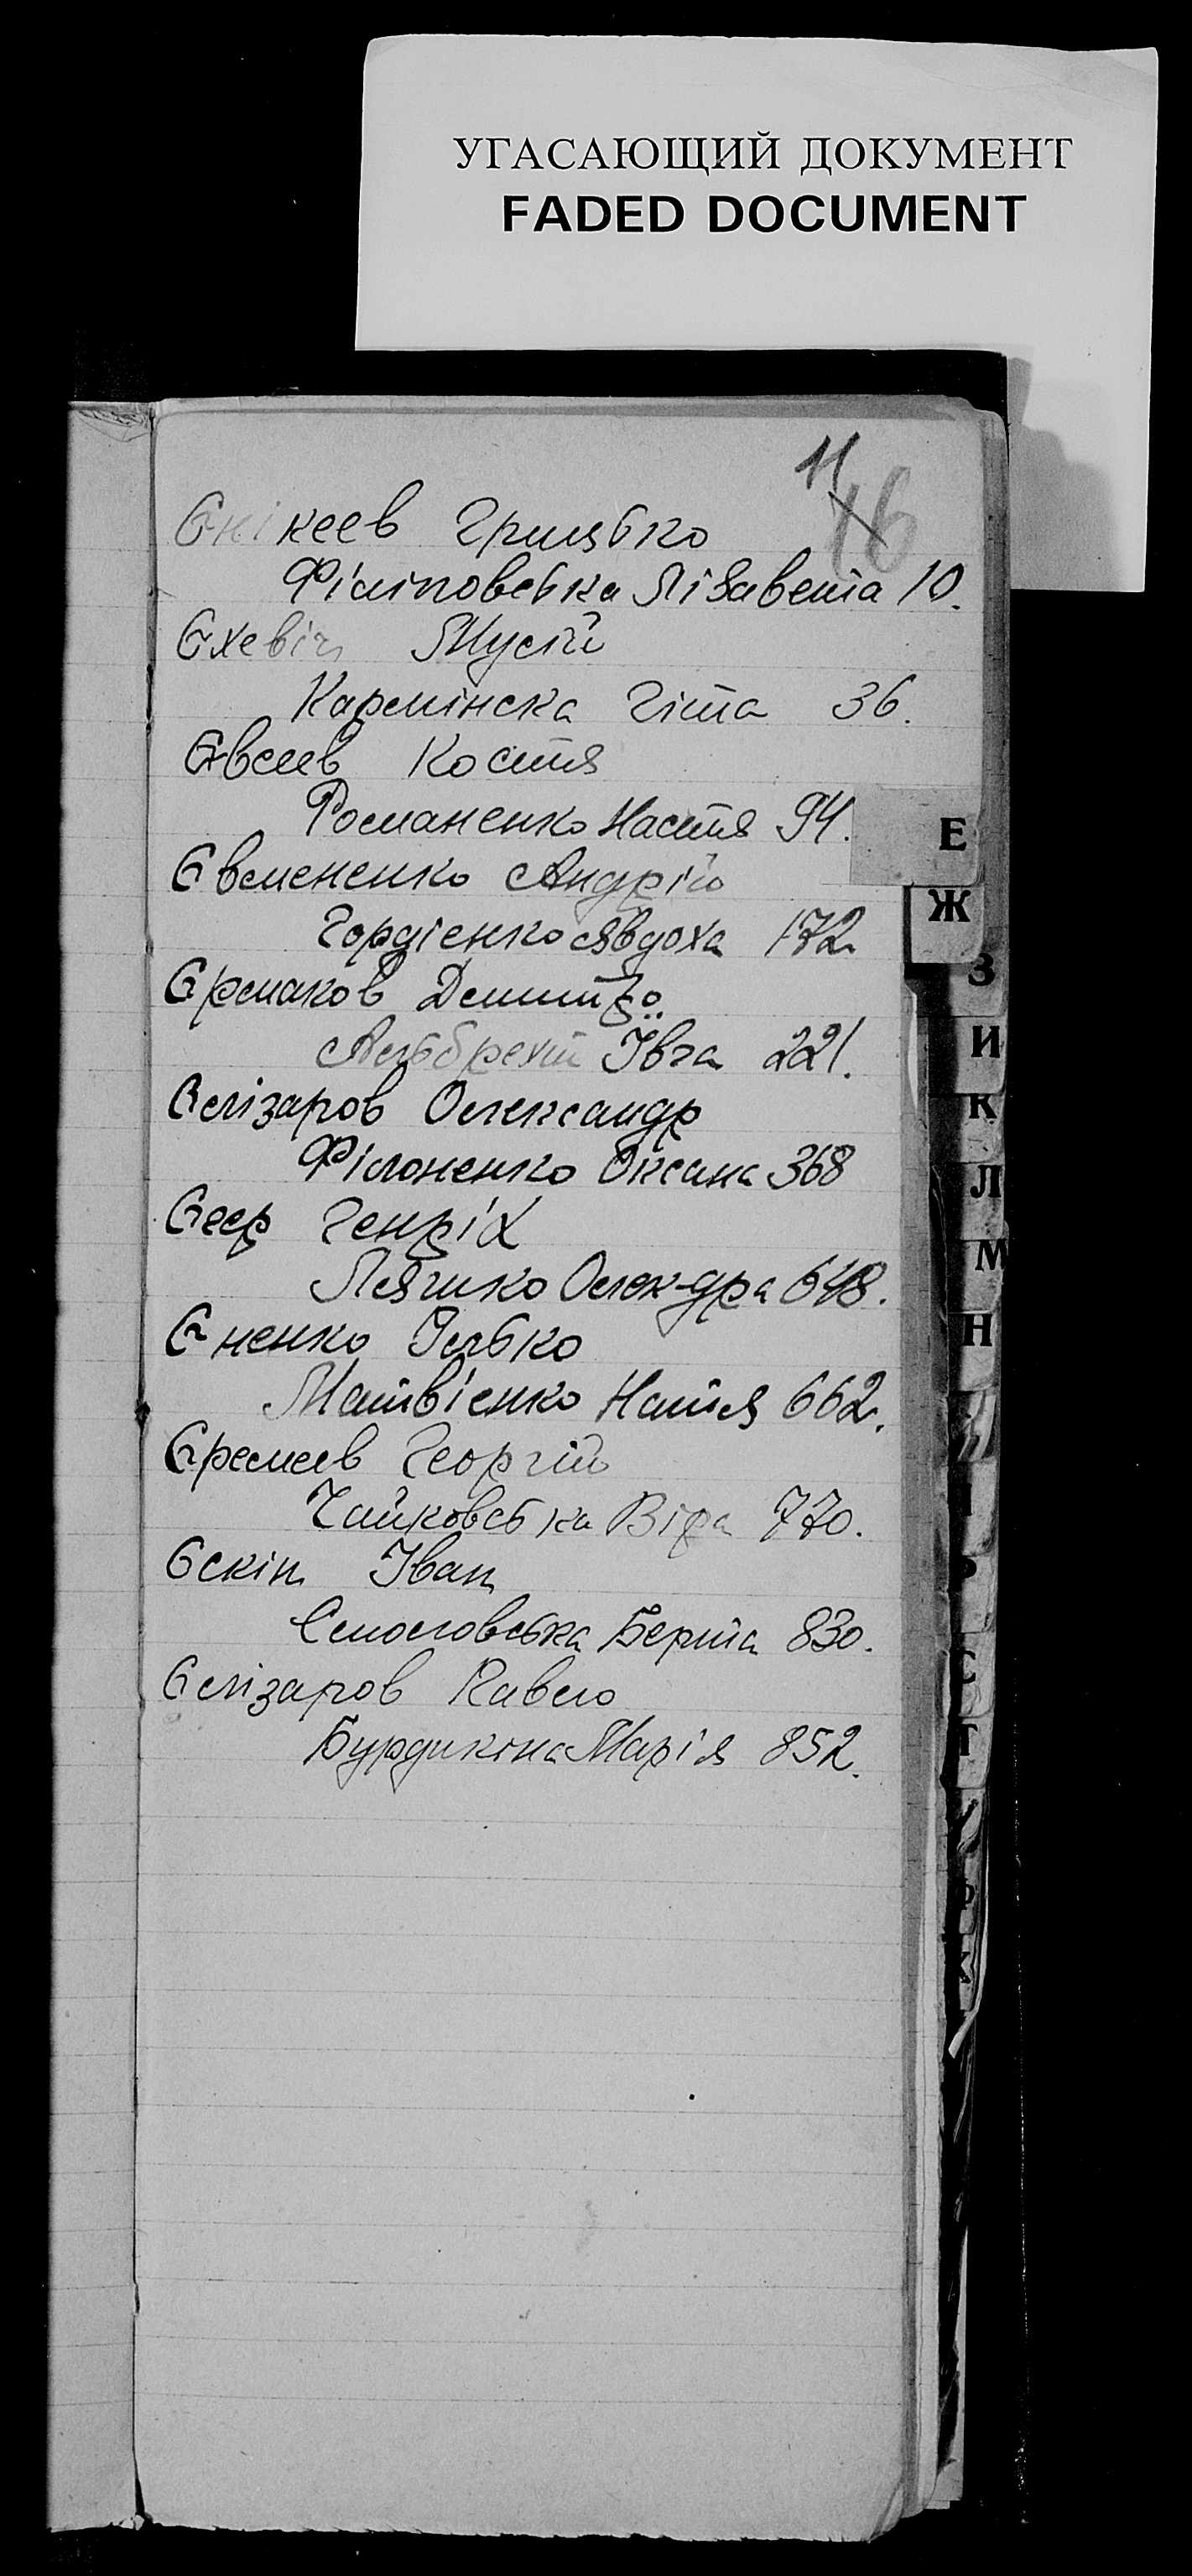 УГАСАЮЩИЙ ДОКУМЕНТ
FADED DOCUMENT
11
16
Єнікеев Грицько
Філіповська Лізавета 10.
Єхевіч Мусій
Кармінска Гіта 36.
Євсеев Костя
Романенко Настя 94.
Євмененко Андрій
Гордієнко Явдоха 172
Єрмаков Демитро
Альбрехт Ївга 221.
Єлізаров Олександр
Філоненко Оксана 368
Єгер Генріх
Лячко Олек-дра 648.
Єненко Юлько
Матвієнко Натля 662.
Єремеев Георгій
Чайковська Віра 770.
Єскін Іван
Смоловська Берта 830.
Єлізаров Павло
Бурдикіна Марія 852.
Е
Ж
З
И
К
Л
М
Н
Р
С
Т